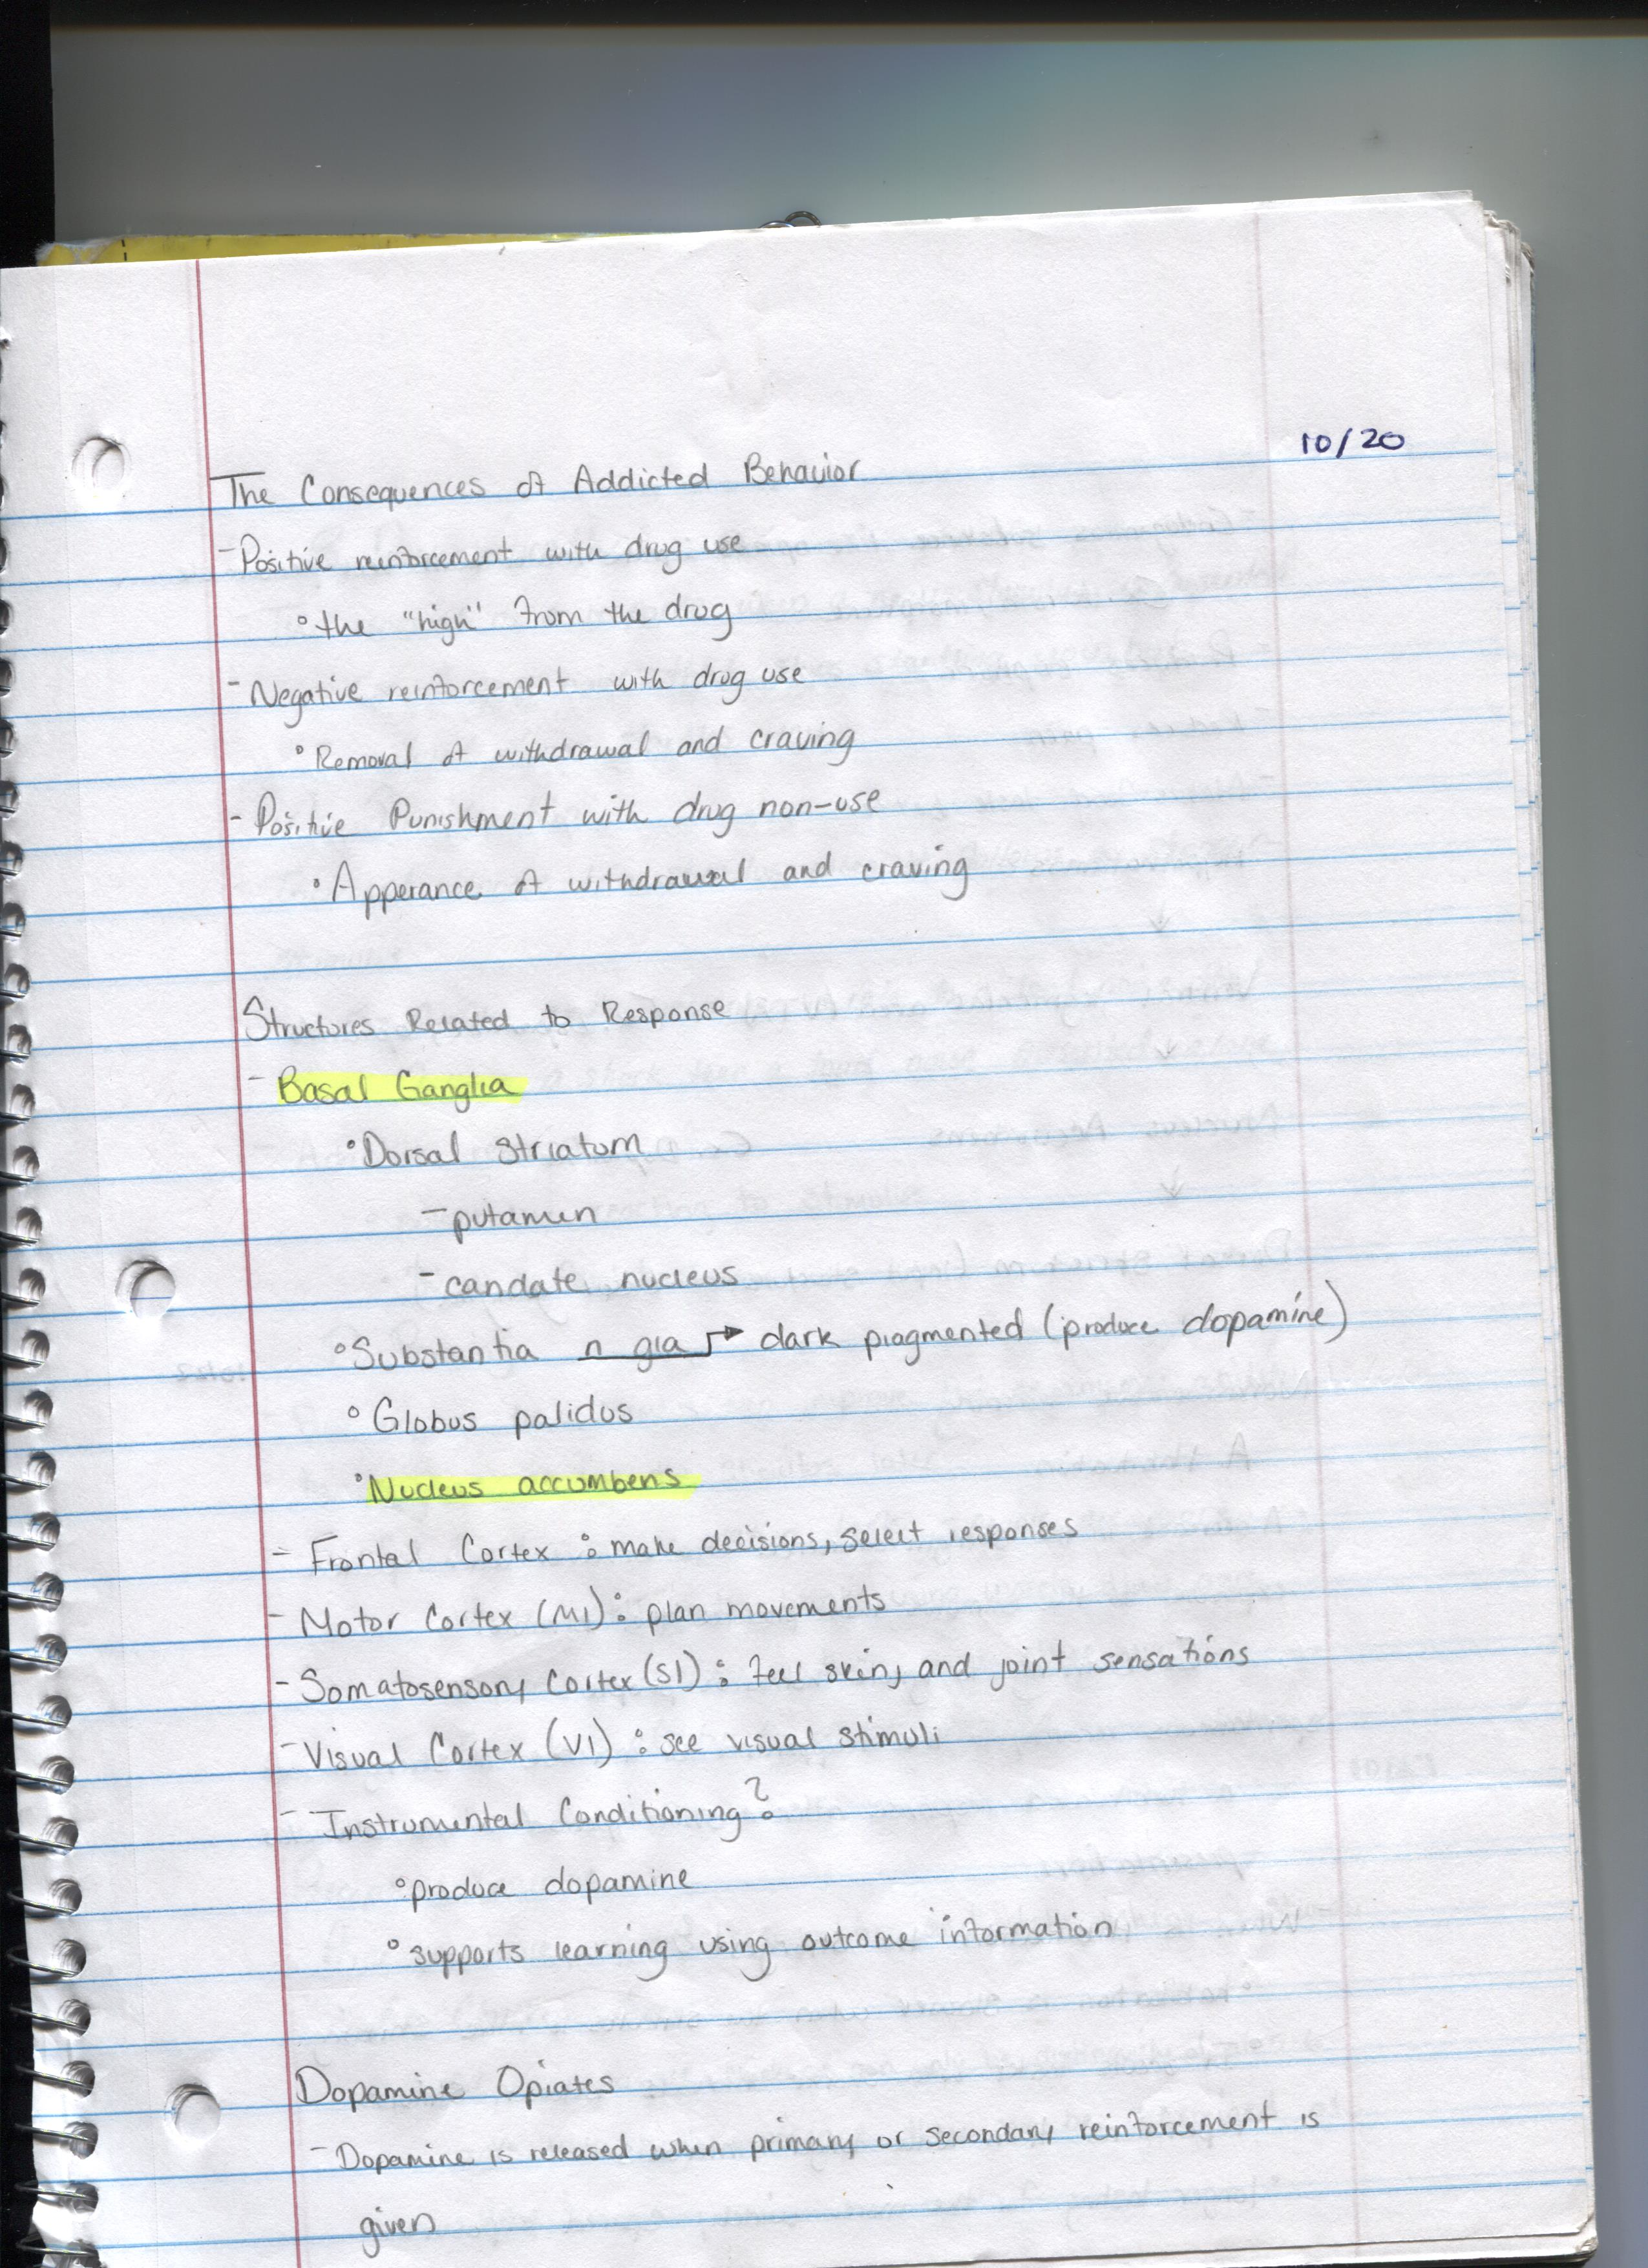 10/20
The Consequences of Addicted Behavior
- Positive reinforcement with drug use
° the "high" from the drug
- Negative reinforcement with drug use
° Removal of withdrawal and craving
- Positive Punishment with drug non-use
° Apperance of withdrawal and craving
Structures Related to Response
- Basal Ganglia
° Dorsal striatum
- putamen
- candate nucleus
° Substantia n gia → dark piagmented (produce dopamine)
° Globus palidus
° Nucleus accumbens
- Frontal Cortex : make decisions, select responses
- Motor Cortex (M1) : plan movements
- Somatosensory Cortex (S1) : feel skin, and joint sensations
- Visual Cortex (V1) : see visual stimuli
- Instrumental Conditioning?
° produce dopamine
° supports learning using outcome information
Dopamine Opiates
- Dopamine is released when primary or secondary reinforcement is
given